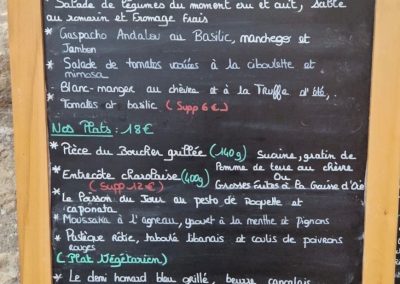 * Salade de légumes du moment cru et cuit, sablé
au romarin et Fromage frais
* Gaspacho Andalou au Basilic, manchego et
Jambon
* Salade de tomates variées à la ciboulette et
mimosa
Blanc-manger au chèvre et à la Truffe d'été,
* Tomates et basilic (Supp 6€)
Nos Plats : 18€
* Pièce du Boucher grillée (140g) Sucrine, gratin de
Pomme de terre au chèvre
* Entrecôte charolaise (400g) Ou
(Supp 12€) Grosses frites à la Gaisse d'Oie
* Le Poisson du Jour au pesto de Roquette et
caponata
* Moussaka à l'agneau, yaourt à la menthe et pignons
* Pastèque rôtie, taboulé libanais et coulis de poivrons
rouges
(Plat Végétarien)
* Le demi homard bleu grillé, beurre